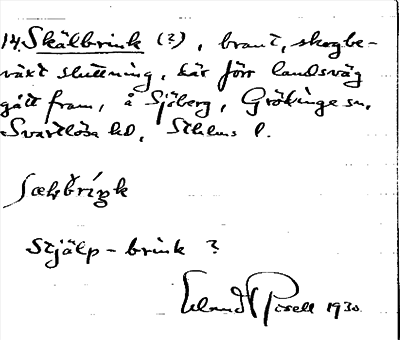 14. Skälbrink (?), brant, skogbe-
växt sluttning, där förr landsväg
gått fram, å Sjöberg, Grödinge sn,
Svartlösa hd, Sthlms l.
Stjälp-brink ?
Erland Rosell 1930